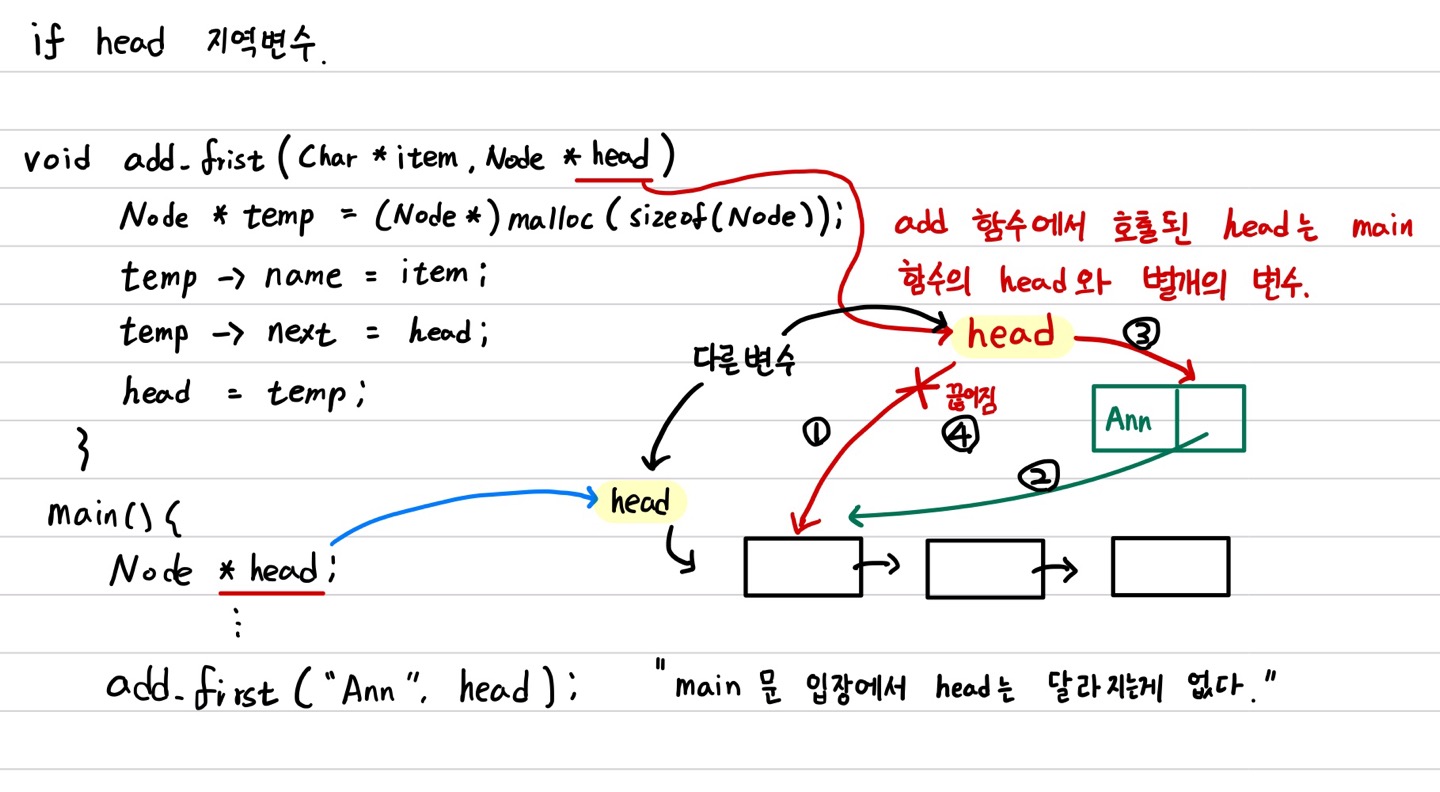 if head 지역변수.
void add_frist (Char * item, Node * head)
Node * temp = (Node*) malloc (sizeof(Node));
temp -> name = item;
temp -> next = head;
head = temp;
}
add 함수에서 호출된 head는 main
함수의 head와 별개의 변수.
head
③
다른변수
끊어짐
①
④
Ann
②
head
main() {
Node * head;
⋮
add_first ("Ann", head);
"main 문 입장에서 head는 달라지는게 없다."